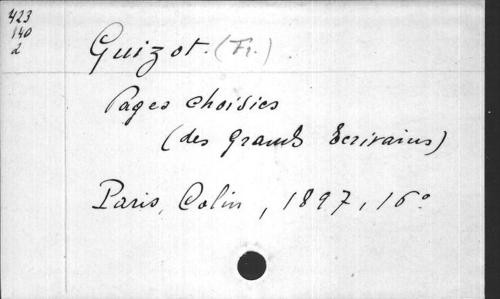 423
140
2
Guizot. (Fr.)
Pages choisies
(des Grands Ecrivains)
Paris, Colin, 1897, 16°